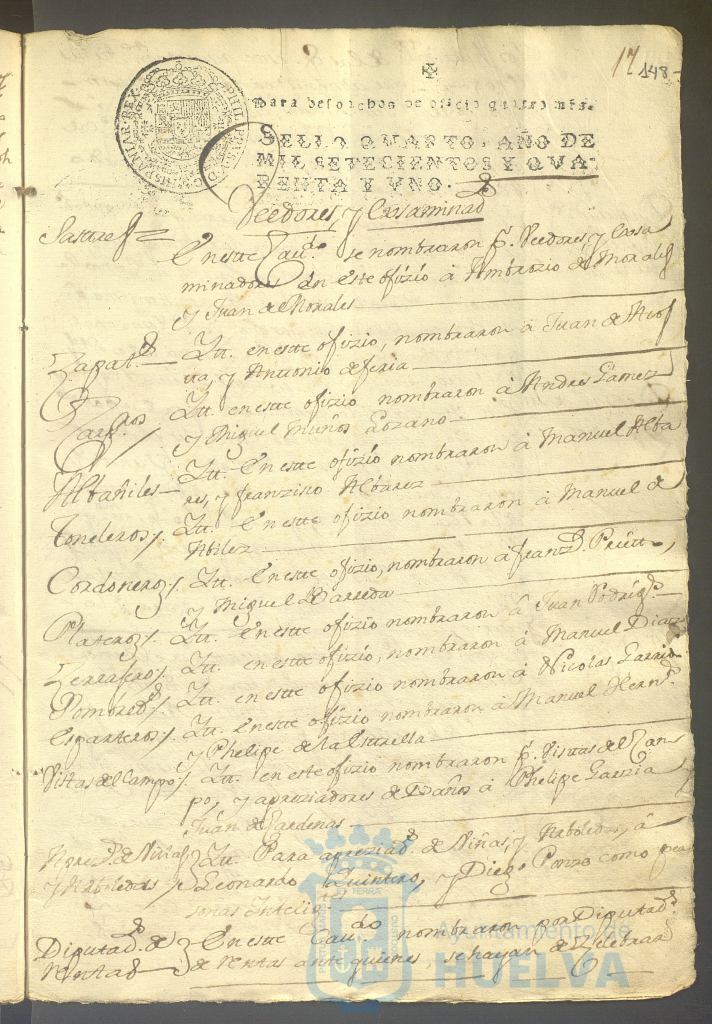 17 148
PHILIPPUS V D G HISPANIAR REX
Para despachos de oficio quatro mrs.
SELLO QVARTO, AÑO DE
MIL SETECIENTOS Y QVA-
RENTA Y VNO.
Veedores y Exsaminad
Sastres
En este Cavdo. se nombraron pr. Veedores y Exsa
minadores en este ofizio â Ambrozio de Morales
y Juan de Morales
Zapat.
Ytt. en este ofizio, nombraron â Juan de
ta, y Antonio de feria
Carpros
Ytt. en este ofizio nombraron â Andres Gamez
y Miguel Muños Lozano
Albañiles
Ytt. En este ofizio nombraron â Manuel Alba
res, y franzisco Albarez
Toneleros
Ytt. En este ofizio nombraron â Manuel de
Abilez
Cordoneros
Ytt. En este ofizio, nombraron â franzo. Prietto,
y Miguel Barreda
Plateros
Ytt. En este ofizio nombraron â Juan Rodrigs.
Zerrajeros
Ytt. en este ofizio, nombraron â Manuel Diaz
Ytt. en este ofizio nombraron â Nicolas Garrido
Esparteros
Ytt. En este ofizio nombraron â Manuel Hernz.
y Phelipe de la Estrella
Vistas del Campo
Ytt. en este ofizio nombraron pr. Vistas del Can
po, y apreziadores de Daños â Phelipe Garzia
Juan de Cardenas
Apred. de Viñas
y Arboledas
Ytt. Para apreziad. de Viñas, y Arboledas, â
Leonardo Quintero, y Diego Ponze como per
sonas Intelig
Diputad. de
Rentas
En este Cavdo nombraron por Diputad.
de Rentas ante quienes, se hayan de Zelebrar
Ayuntamiento de
HUELVA